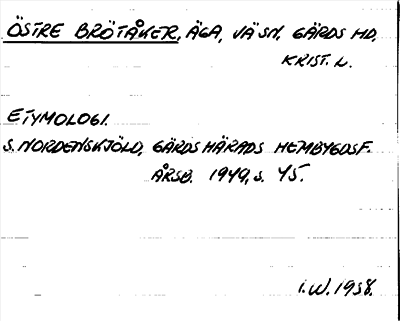 ÖSTRE BRÖTÅKER, ÄGA, VÄ SN, GÄRDS HD,
KRIST. L.
ETYMOLOGI.
S. NORDENSKJÖLD, GÄRDS HÄRADS HEMBYGDSF.
ÅRSB. 1949, S. 45.
I.W. 1958.